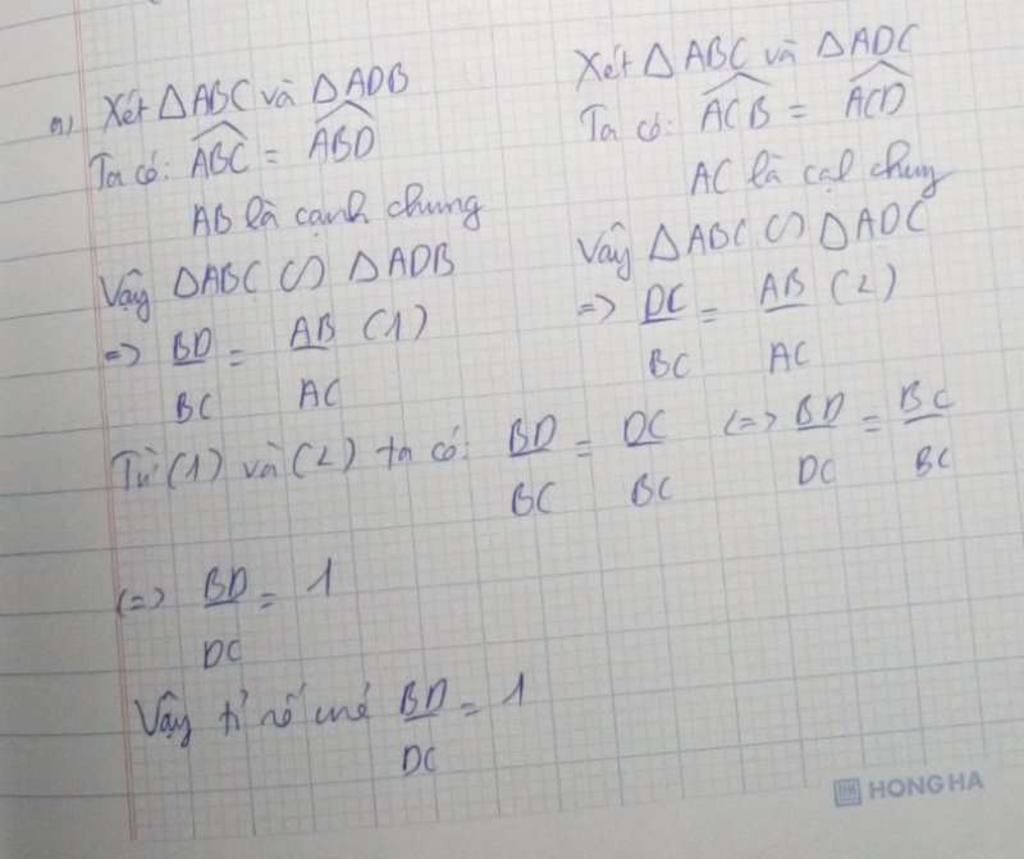 a) Xét △ABC và △ADB
Ta có: ABC = ABD
AB là cạnh chung
Vậy △ABC ∽ △ADB
=> BD/BC = AB/AC (1)
Xét △ABC và △ADC
Ta có: ACB = ACD
AC là cạl chung
Vậy △ABC ∽ △ADC
=> DC/BC = AB/AC (2)
Từ (1) và (2) ta có: BD/BC = DC/BC (=> BD/DC = BC/BC
(=> BD/DC = 1
Vậy tỉ số BD/DC = 1
HONG HA